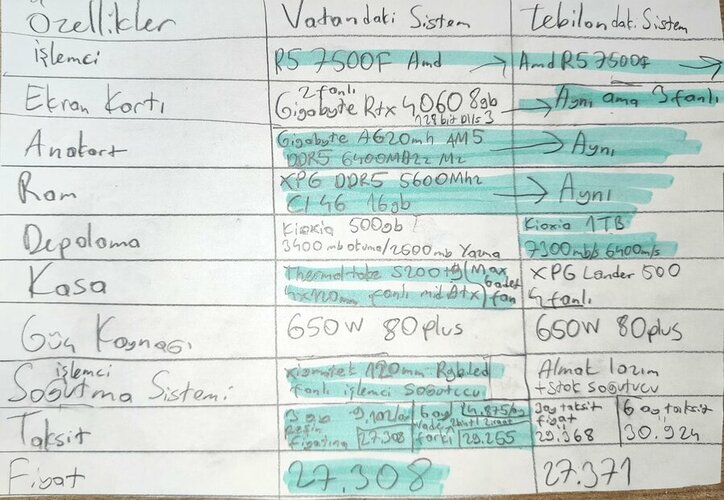 Özellikler Vatandaki Sistem Tebilondaki Sistem
işlemci R5 7500F Amd → Amd R5 7500f →
Ekran Kartı 2 fanlı Gigabyte Rtx 4060 8gb → Aynı ama 3 fanlı
128 bit Dlls 3
Anakart Gigabyte A620mh AM5 → Aynı
DDR5 6400MHz M2
Ram XPG DDR5 5600Mhz → Aynı
Cl 46 16gb
Depolama Kioxia 500gb Kioxia 1TB
3400 mb okuma/2600 mb Yazma 7300mb/s 6400m/s
Kasa Thermaltake S200 (Max 6 adet XPG Lander 500
4x120mm fanlı mid Atx) fan 4 fanlı
Güç Kaynağı 650W 80plus 650W 80plus
işlemci 120mm Rgbled Almak lazım
Soğutma Sistemi: fanlı işlemci soğutucu +stok soğutucu
Taksit 3 ay 9,102/ay 6 ay 4.875/ay 3ay taksit 6 ay taksit
peşin vade fiyat
fiyatına 27.308 farkı 29.265 29.368 30.924
Fiyat 27.308 27.371